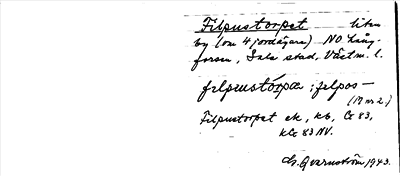 Filpustorpet liten
by (om 4 jordägare) NO Lång-
forsen, Sala stad, Västm. l.
filpenstórpa; filpos-
(17 nr 2.)
Filpustorpet ek, kb, Ge 83,
kGe 83 NV.
G. Qvarnström 1943.